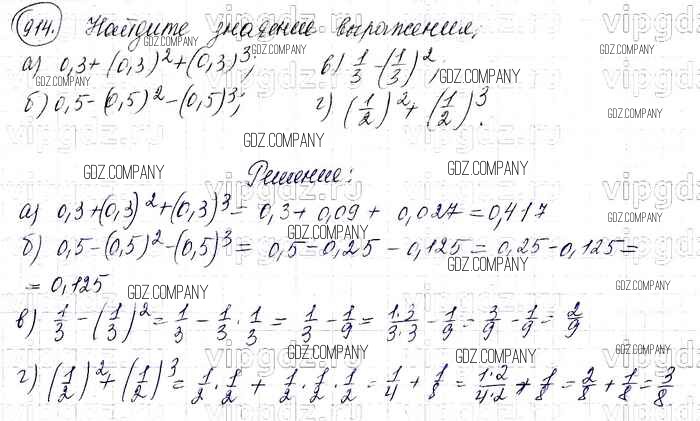 914. Найдите значение выражения:
а) 0,3 + (0,3)² + (0,3)³; в) 1/3 - (1/3)²;
б) 0,5 - (0,5)² - (0,5)³; г) (1/2)² + (1/2)³.
Решение:
а) 0,3 + (0,3)² + (0,3)³ = 0,3 + 0,09 + 0,027 = 0,417
б) 0,5 - (0,5)² - (0,5)³ = 0,5 - 0,25 - 0,125 = 0,25 - 0,125 =
= 0,125
в) 1/3 - (1/3)² = 1/3 - 1/3 · 1/3 = 1/3 - 1/9 = 1·3/3·3 - 1/9 = 3/9 - 1/9 = 2/9
г) (1/2)² + (1/2)³ = 1/2 · 1/2 + 1/2 · 1/2 · 1/2 = 1/4 + 1/8 = 1·2/4·2 + 1/8 = 2/8 + 1/8 = 3/8